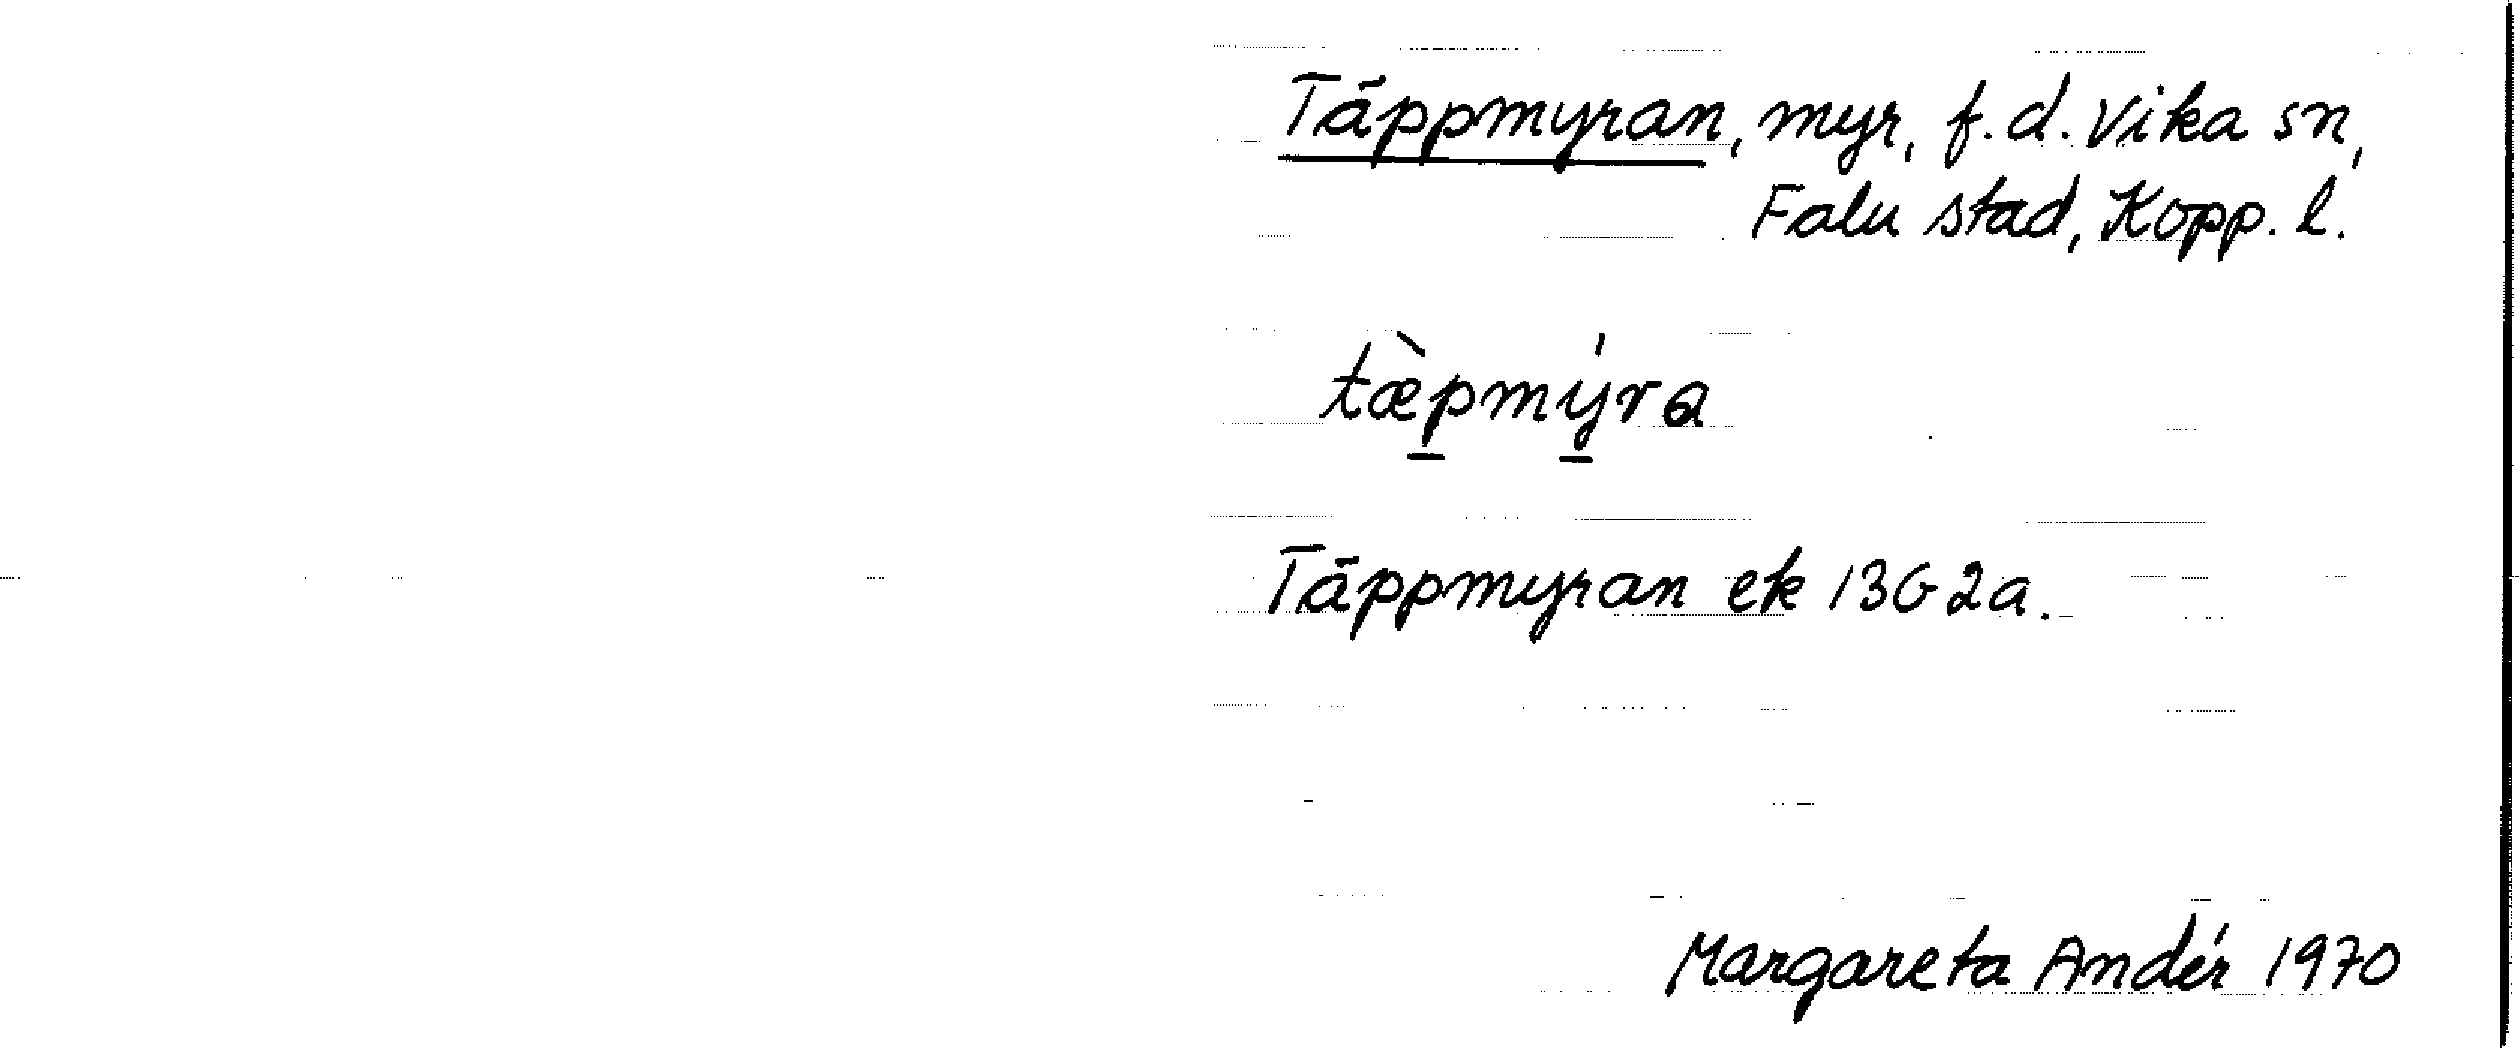 Täppmyran, myr, f.d. Vika sn,
Falu stad, Kopp. l.
tæ̀p̱mý̱ra
Täppmyran ek 13G2a.
Margareta Andér 1970